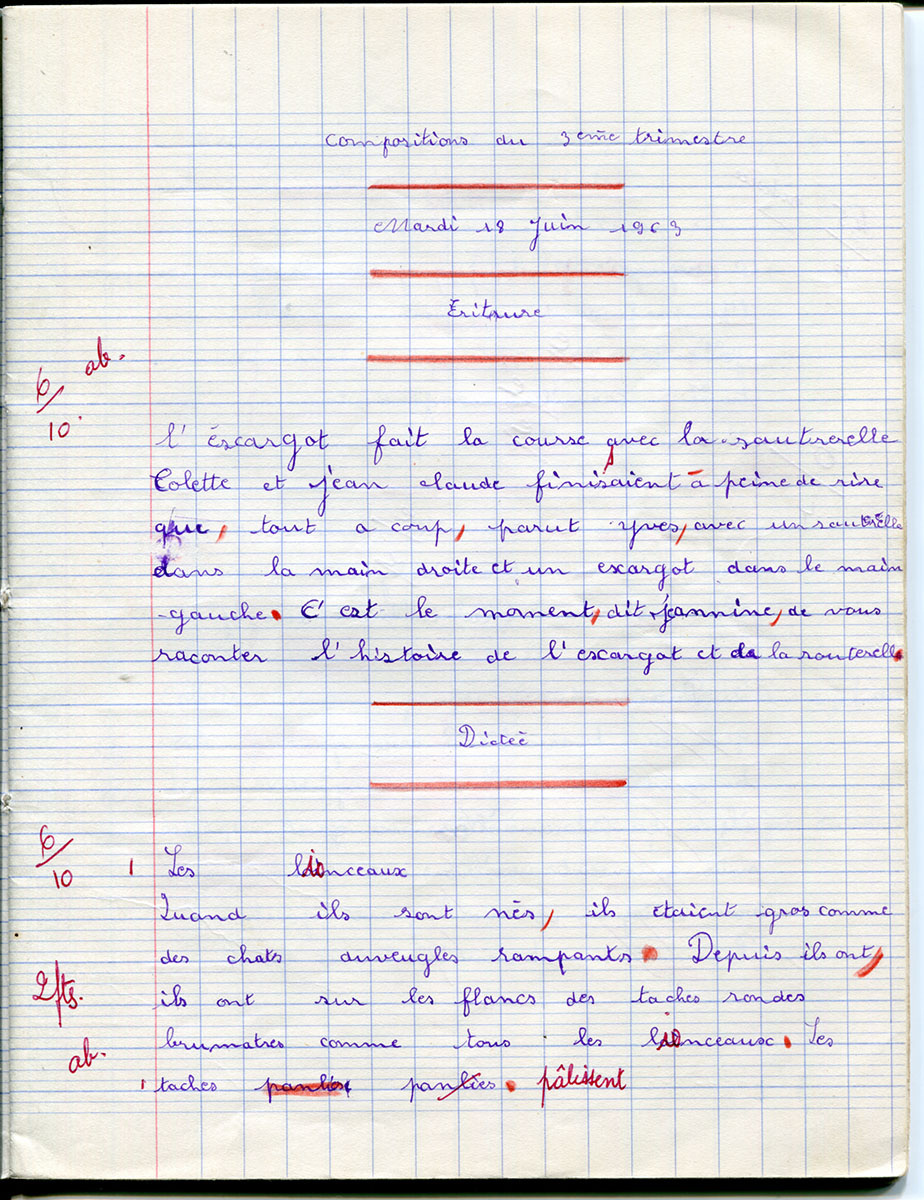 Compositions du 3eme trimestre
Mardi 18 Juin 1963
Ecriture
6/10 ab.
l'éscargot fait la course avec la sautrerelle
Colette et jean claude finisaient à peine de rire
que, tout a coup, parut Yves, avec un sauterelle
dans la main droite et un excargot dans le main
gauche. C'est le moment, dit jeannine, de vous
raconter l'histoire de l'escargot et de la souterelle.
Dictée
6/10
1 Les lionceaux
Quand ils sont nés, ils etaient gros comme
des chats auveugles rampants. Depuis ils ont,
2 fts.
ils ont sur les flancs des taches rondes
brumatres comme tous les lionceaux. Les
ab.
1 taches panlies. pâlissent